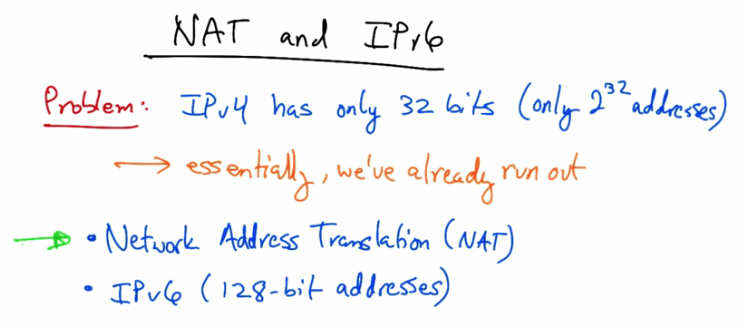 NAT and IPv6
Problem: IPv4 has only 32 bits (only 2^32 addresses)
→ essentially, we've already run out
→ • Network Address Translation (NAT)
• IPv6 (128-bit addresses)